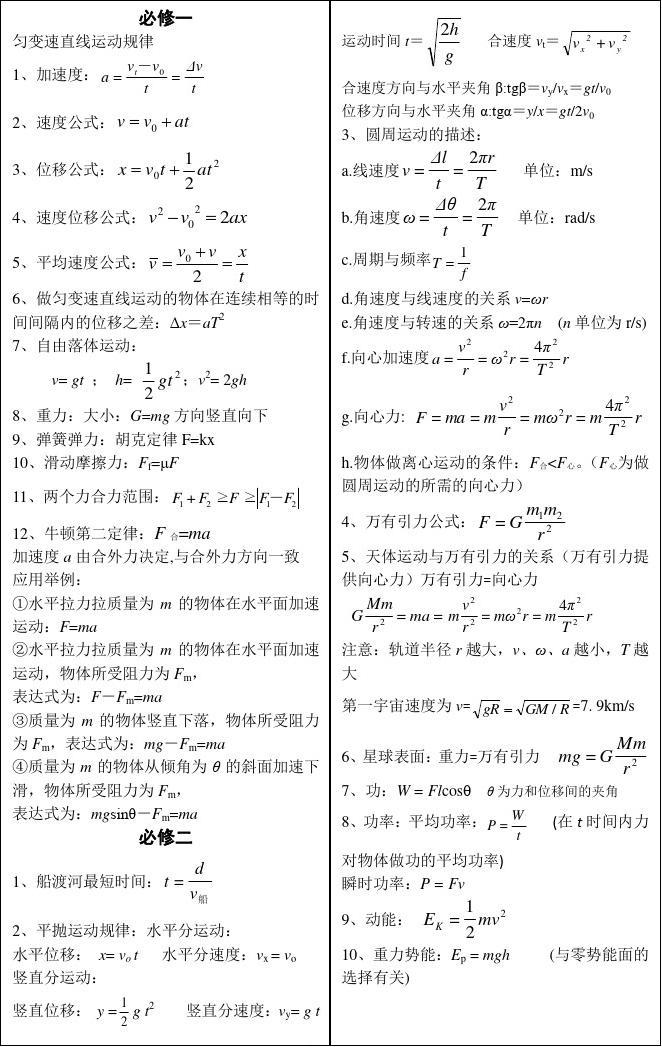 必修一
匀变速直线运动规律
1、加速度：a = (v_t－v_0)/t = Δv/t
2、速度公式：v = v_0 + at
3、位移公式：x = v_0t + 1/2 at²
4、速度位移公式：v² － v_0² = 2ax
5、平均速度公式：v̄ = (v_0 + v)/2 = x/t
6、做匀变速直线运动的物体在连续相等的时
间间隔内的位移之差：Δx＝aT²
7、自由落体运动：
v= gt ； h= 1/2 gt²；v²= 2gh
8、重力：大小：G=mg 方向竖直向下
9、弹簧弹力：胡克定律 F=kx
10、滑动摩擦力：F_f=μF
11、两个力合力范围：F_1 + F_2 ≥F ≥|F_1－F_2|
12、牛顿第二定律：F 合=ma
加速度 a 由合外力决定,与合外力方向一致
应用举例：
①水平拉力拉质量为 m 的物体在水平面加速
运动：F=ma
②水平拉力拉质量为 m 的物体在水平面加速
运动，物体所受阻力为 F_m，
表达式为：F－F_m=ma
③质量为 m 的物体竖直下落，物体所受阻力
为 F_m，表达式为：mg－F_m=ma
④质量为 m 的物体从倾角为 θ 的斜面加速下
滑，物体所受阻力为 F_m，
表达式为：mgsinθ－F_m=ma
必修二
1、船渡河最短时间：t = d/v_船
2、平抛运动规律：水平分运动：
水平位移： x= v_o t 水平分速度：v_x = v_o
竖直分运动：
竖直位移： y =1/2 g t² 竖直分速度：v_y= g t
运动时间 t＝ √(2h/g) 合速度 v_t＝ √(v_x² + v_y²)
合速度方向与水平夹角 β:tgβ＝v_y/v_x＝gt/v_0
位移方向与水平夹角 α:tgα＝y/x＝gt/2v_0
3、圆周运动的描述：
a.线速度 v = Δl/t = 2πr/T 单位：m/s
b.角速度 ω = Δθ/t = 2π/T 单位：rad/s
c.周期与频率 T = 1/f
d.角速度与线速度的关系 v=ωr
e.角速度与转速的关系 ω=2πn (n 单位为 r/s)
f.向心加速度 a = v²/r = ω²r = 4π²/T² r
g.向心力: F = ma = m v²/r = mω²r = m 4π²/T² r
h.物体做离心运动的条件：F合<F心。（F心为做
圆周运动的所需的向心力）
4、万有引力公式：F = G m_1m_2/r²
5、天体运动与万有引力的关系（万有引力提
供向心力）万有引力=向心力
G Mm/r² = ma = m v²/r² = mω²r = m 4π²/T² r
注意：轨道半径 r 越大，v、ω、a 越小，T 越
大
第一宇宙速度为 v=√gR = √GM / R =7. 9km/s
6、星球表面：重力=万有引力 mg = G Mm/r²
7、功：W = Flcosθ θ 为力和位移间的夹角
8、功率：平均功率：P = W/t (在 t 时间内力
对物体做功的平均功率)
瞬时功率：P = Fv
9、动能： E_K = 1/2 mv²
10、重力势能：E_p = mgh (与零势能面的
选择有关)